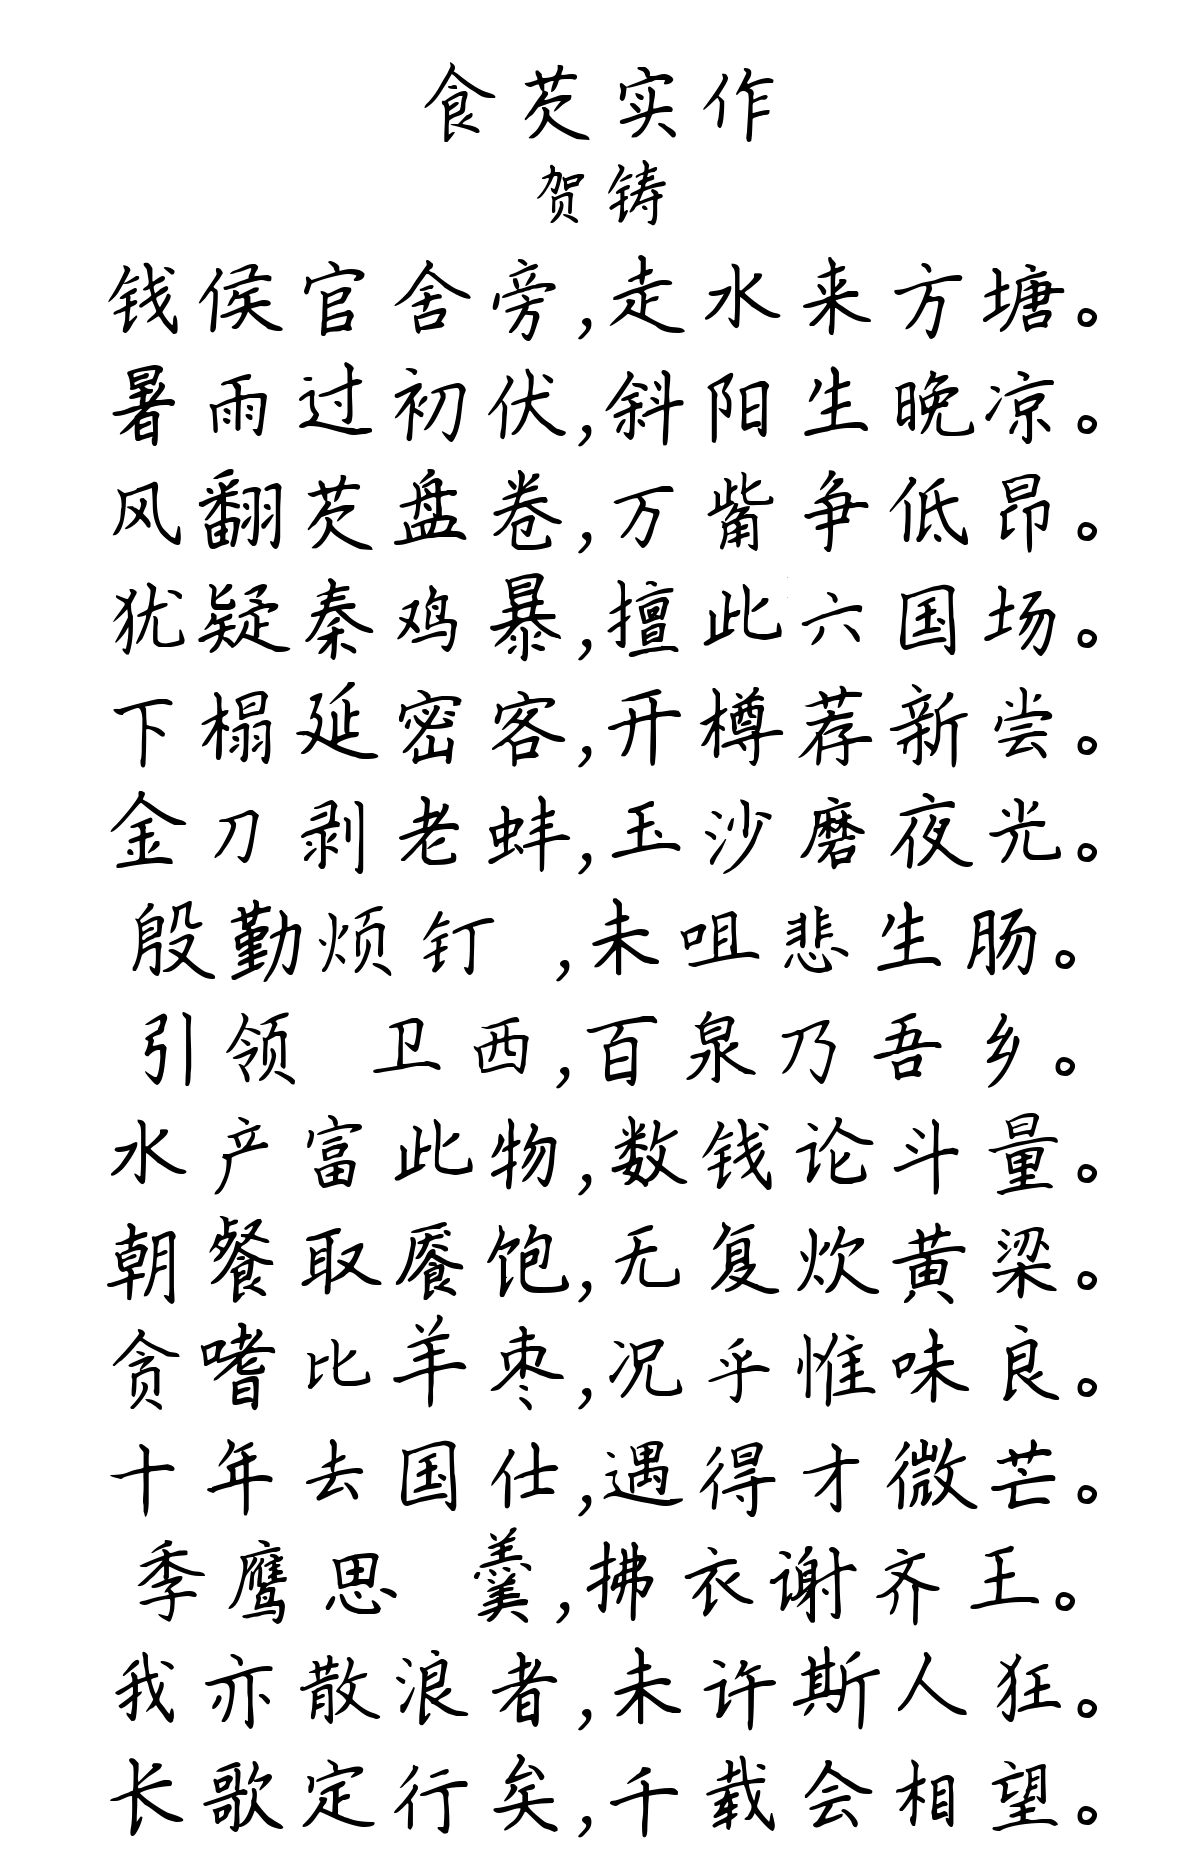 食芡实作
贺铸
钱侯官舍旁,走水来方塘。
暑雨过初伏,斜阳生晚凉。
风翻芡盘卷,万觜争低昂。
犹疑秦鸡暴,擅此六国场。
下榻延密客,开樽荐新尝。
金刀剥老蚌,玉沙磨夜光。
殷勤烦钉 ,未咀悲生肠。
引领 卫西,百泉乃吾乡。
水产富此物,数钱论斗量。
朝餐取餍饱,无复炊黄梁。
贪嗜比羊枣,况乎惟味良。
十年去国仕,遇得才微芒。
季鹰思 羹,拂衣谢齐王。
我亦散浪者,未许斯人狂。
长歌定行矣,千载会相望。